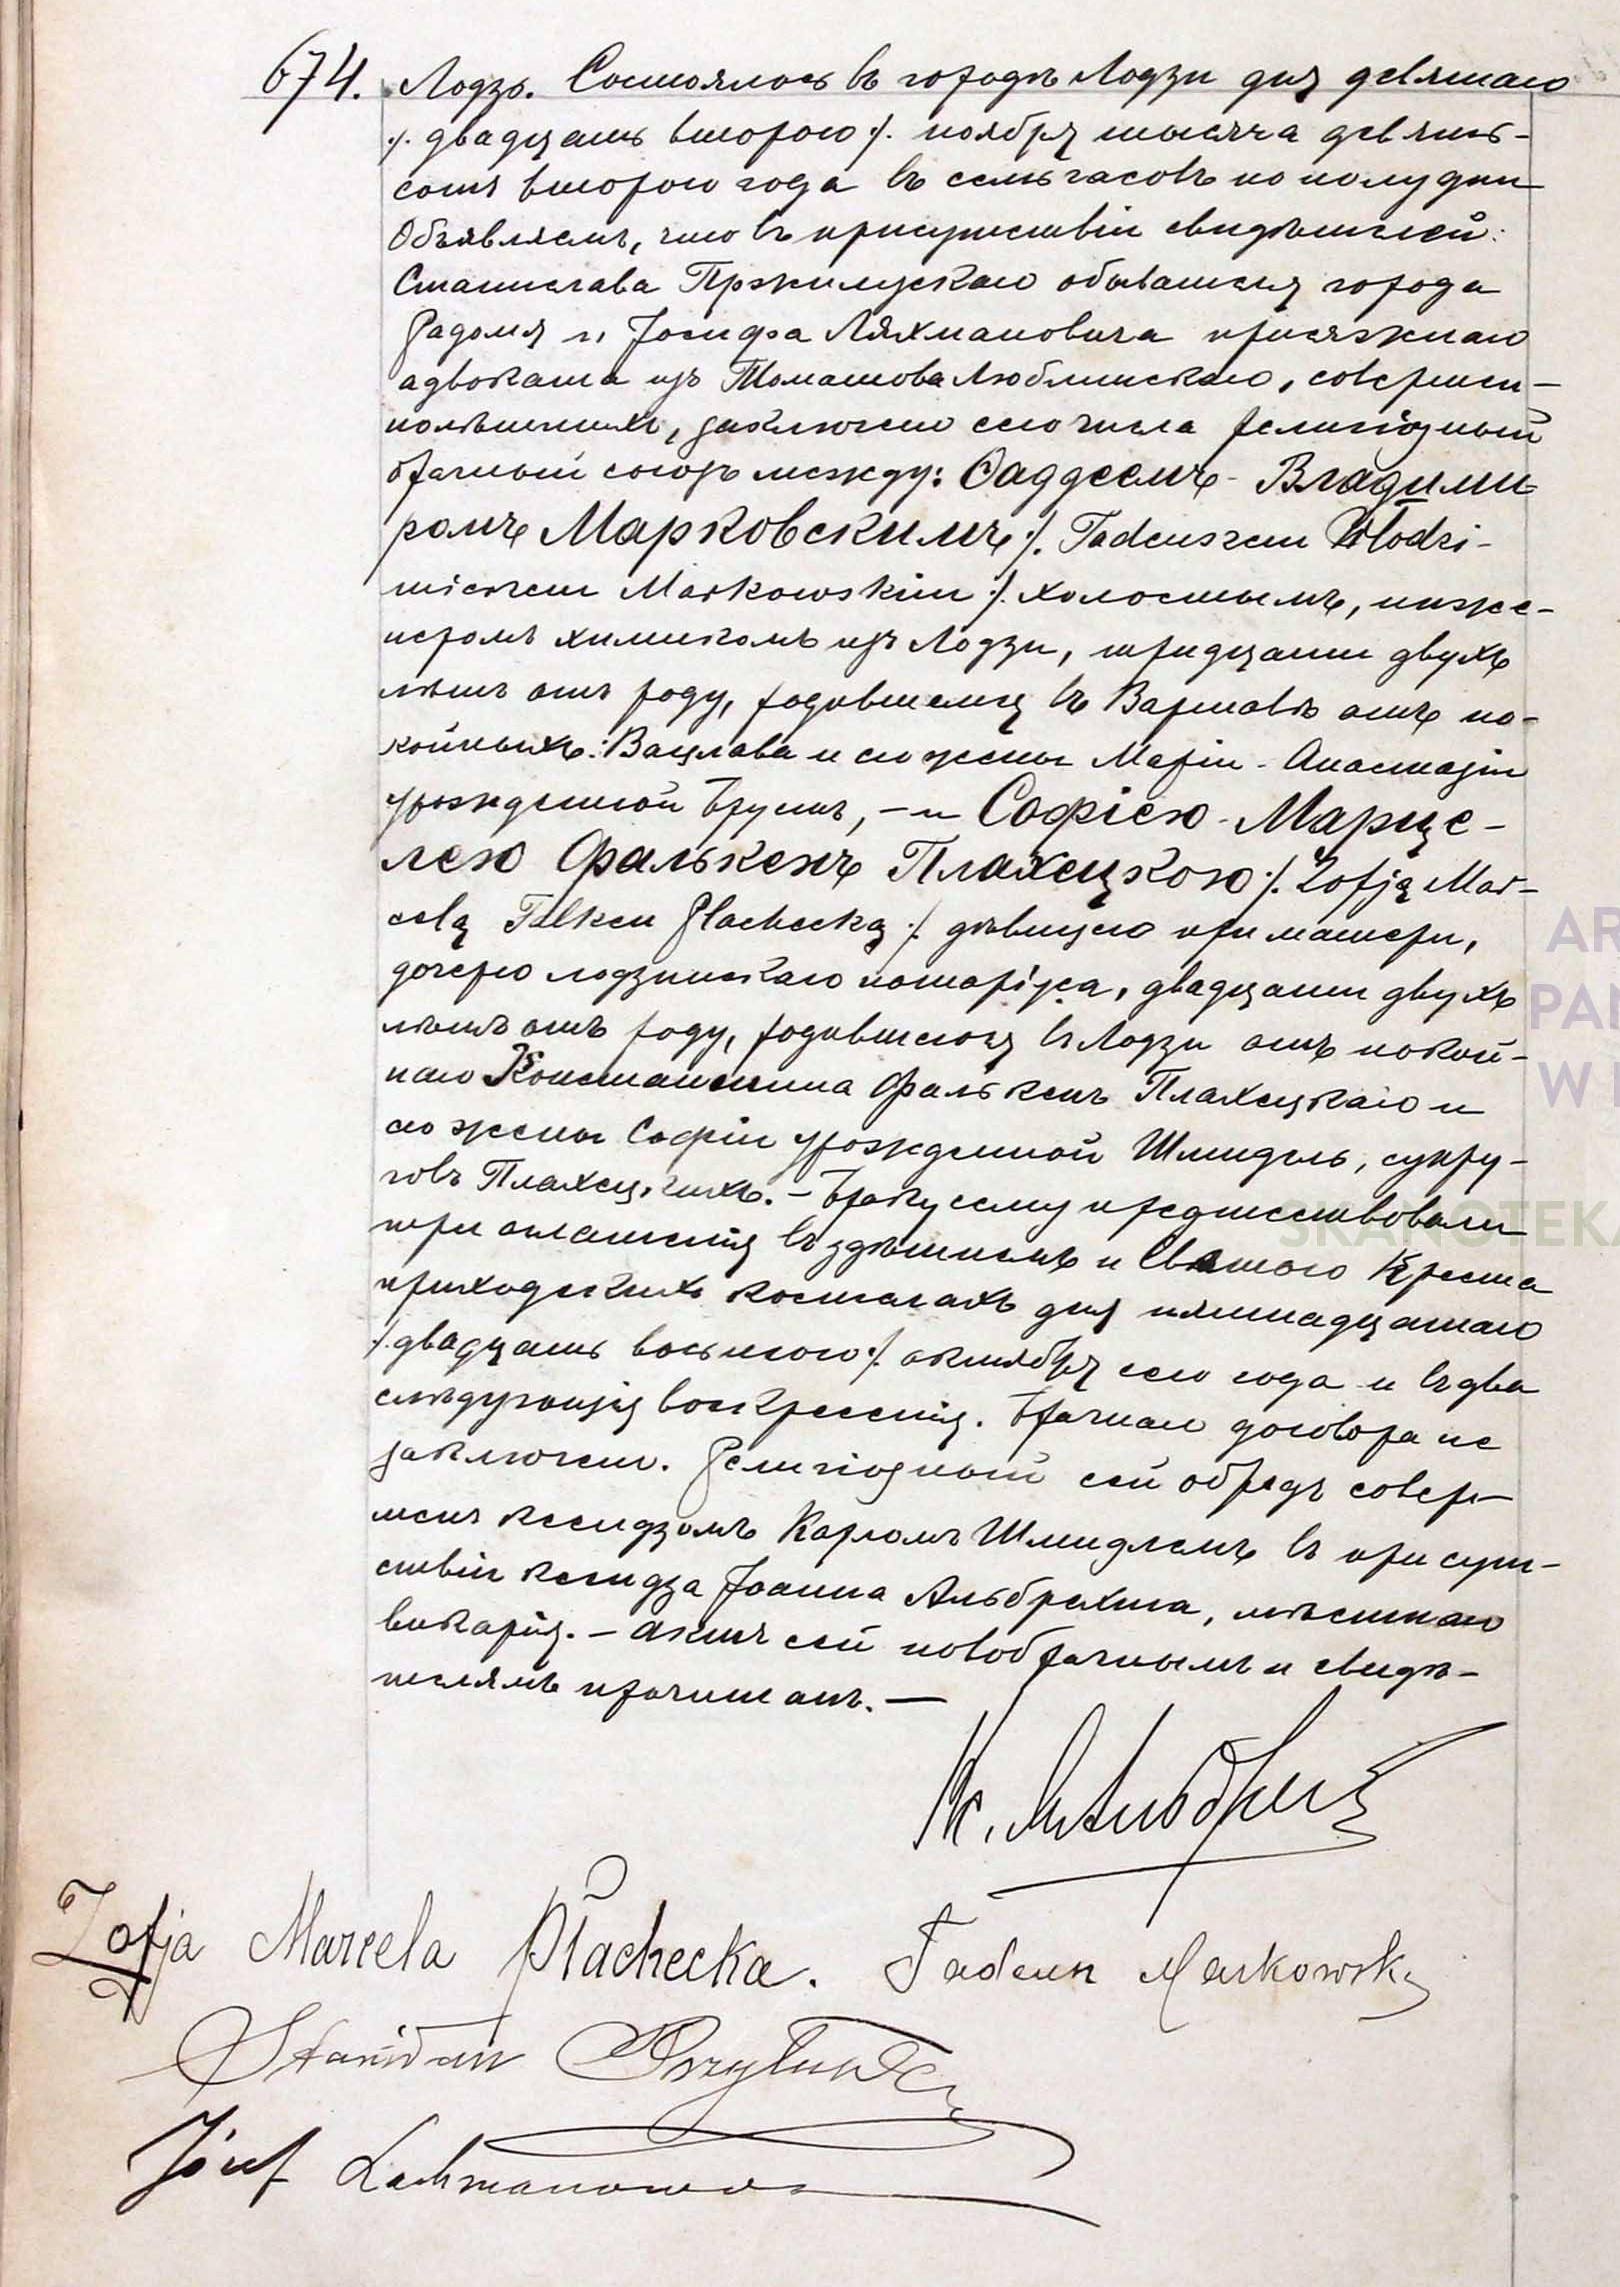 674. Лодзь. Состоялось въ городѣ Лодзи дня девятаго
/. двадцать второго /. ноября тысяча девять-
сотъ второго года въ семь часовъ по полудни
Объявляемъ, что въ присутствіи свидѣтелей:
Станислава Пржилускаго обывателя города
Радомя и Іосифа Ляхмановича присяжнаго
адвоката изъ Томашова Люблинскаго, совершен-
нолѣтнихъ, заключенъ сего числа религіозный
брачный союзъ между: Фаддеемъ - Владими
ромъ Марковскимъ /. Tadeuszem Włodzi-
mierzem Markowskim /. холостымъ, инже-
неромъ химикомъ изъ Лодзи, тридцати двухъ
лѣтъ отъ роду, родившемся въ Варшавѣ отъ по-
койныхъ: Вацлава и его жены Маріи - Анастазіи
урожденной Брунъ, - и Софіею - Марце-
лею Фалькенъ Плахецкою /. Zofją Mar-
celą Falken Płachecką /. дѣвицею при матери,
дочерью лодзинскаго нотаріуса, двадцати двухъ
лѣтъ отъ роду, родившеюся въ Лодзи отъ покой-
наго Константина Фалькенъ Плахецкаго и
его жены Софіи урожденной Шмидель, супру-
говъ Плахецкихъ. - Браку сему предшествовали
три оглашенія въ здѣшнемъ и Святого Креста
приходскихъ костелахъ дня пятнадцатаго
/. двадцать восьмого /. октября сего года и въ два
слѣдующія воскресенія. Брачнаго договора не
заключено. Религіозный сей обрядъ совер-
шенъ ксендзомъ Карломъ Шмидлемъ въ присут-
ствіи ксендза Іоанна Альбрехта, мѣстнаго
викарія. - Актъ сей новобрачнымъ и свидѣ-
телямъ прочитанъ. -
Zofja Marcela Płachecka. Tadeusz Markowski
Stanisław Przyłuski
Józef Lachmanowicz
AR
PAŃ
W
SKANOTEKA